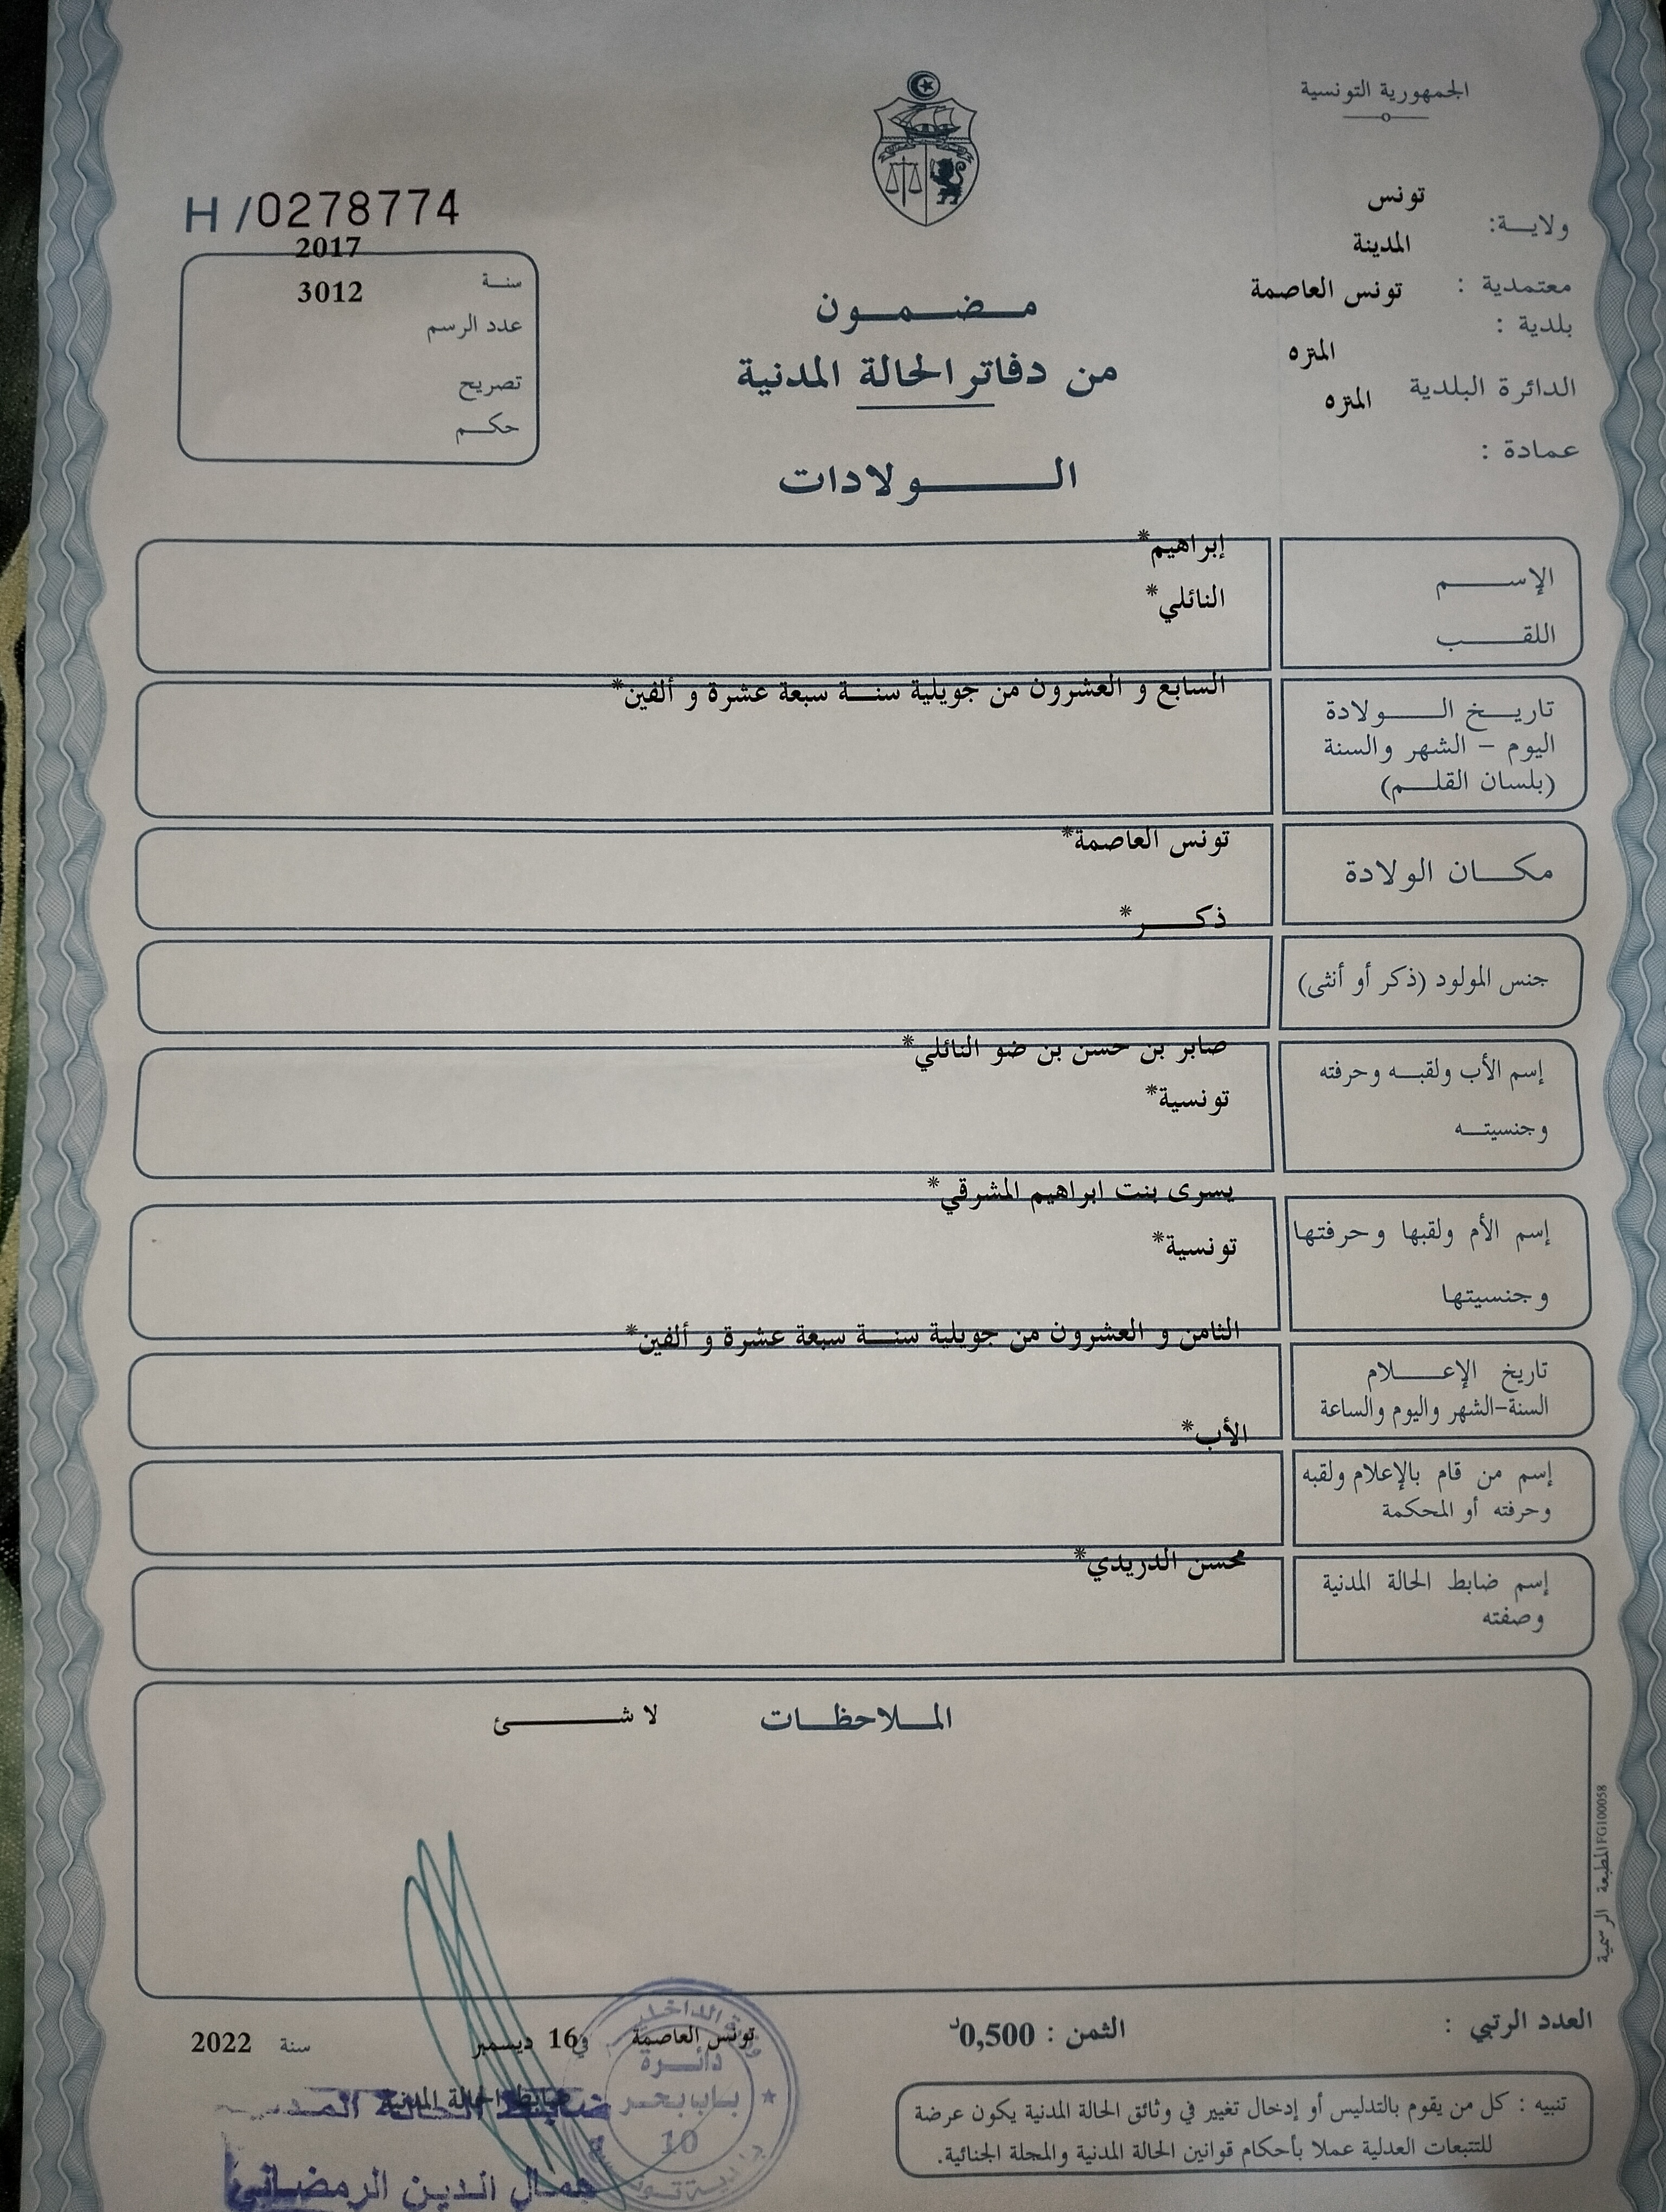 الجمهورية التونسية
H /0278774
ولاية: تونس
المدينة
معتمدية : تونس العاصمة
بلدية :
المنزه
الدائرة البلدية
المنزه
عمادة :
2017
سنة
3012
عدد الرسم
تصريح
حكم
مضمون
من دفاتر الحالة المدنية
الولادات
إبراهيم*
الإسم
النائلي*
اللقب
السابع و العشرون من جويلية سنة سبعة عشرة و ألفين*
تاريخ الولادة
اليوم – الشهر والسنة
(بلسان القلم)
تونس العاصمة*
مكان الولادة
ذكر*
جنس المولود (ذكر أو أنثى)
صابر بن حسن بن ضو النائلي*
إسم الأب ولقبه وحرفته
تونسية*
وجنسيته
يسرى بنت ابراهيم المشرقي*
إسم الأم ولقبها وحرفتها
تونسية*
وجنسيتها
الثامن و العشرون من جويلية سنة سبعة عشرة و ألفين*
تاريخ الإعلام
السنة-الشهر واليوم والساعة
الأب*
إسم من قام بالإعلام ولقبه
وحرفته أو المحكمة
محسن الدريدي*
إسم ضابط الحالة المدنية
وصفته
الملاحظات لا شئ
المطبعة الرسمية FG100058
العدد الرتبي :
الثمن : 0,500د
تونس العاصمة في 16 ديسمبر سنة 2022
ضابط الحالة المدنية
دائرة
باب بحر
10
جمال الدين الرمضاني
تنبيه : كل من يقوم بالتدليس أو إدخال تغيير في وثائق الحالة المدنية يكون عرضة
للتتبعات العدلية عملا بأحكام قوانين الحالة المدنية والمجلة الجنائية.